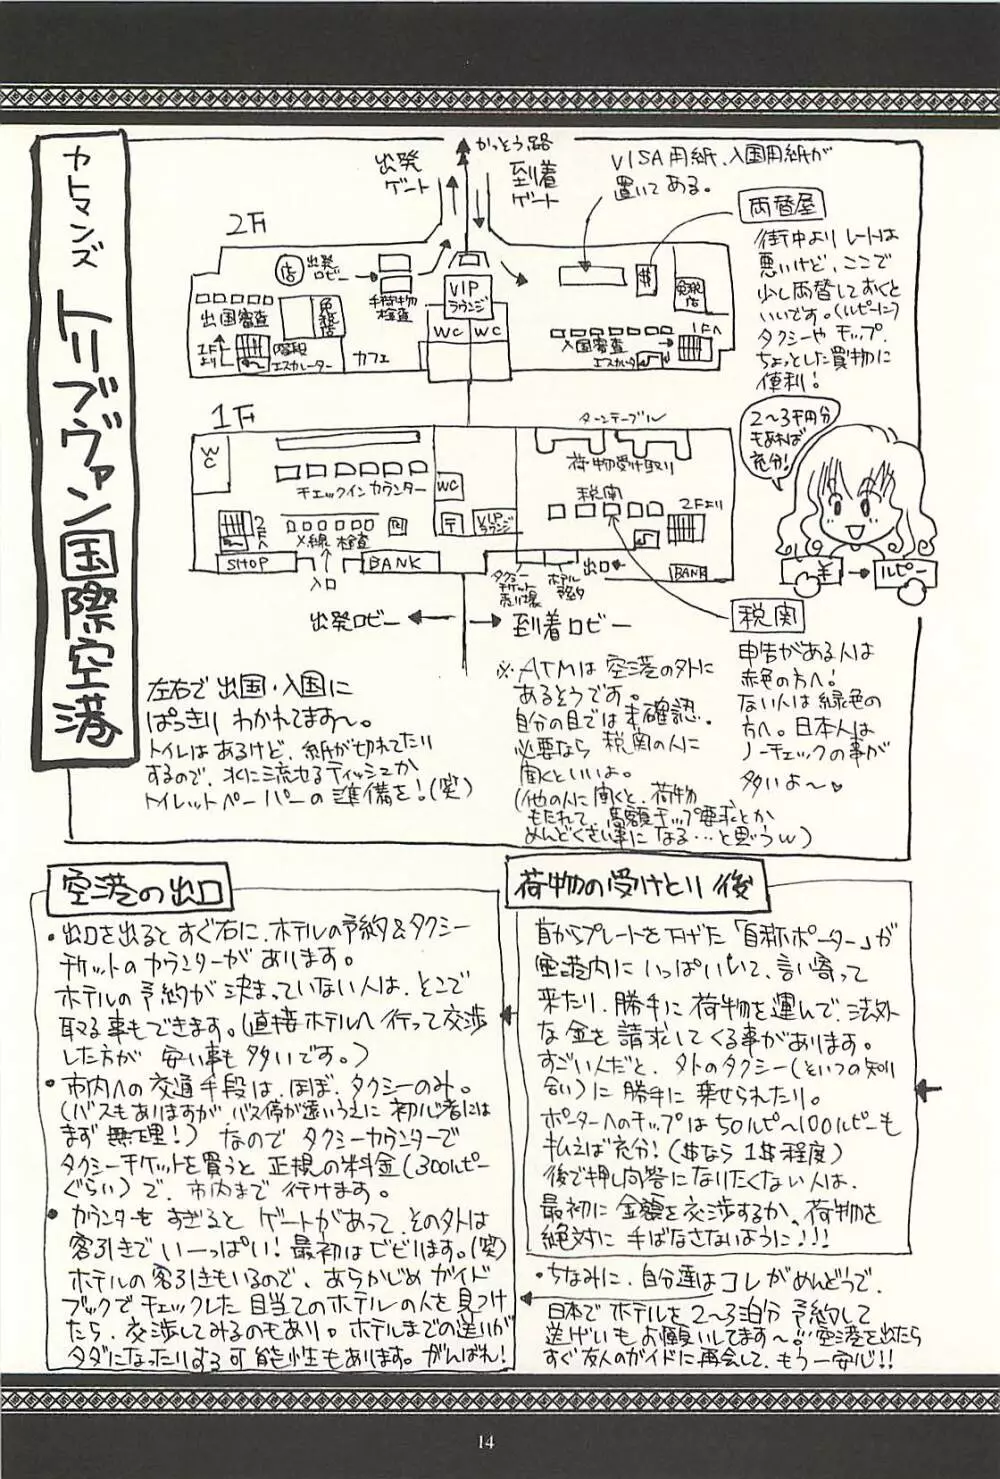 カトマンズ
トリブヴァン国際空港
かっとう路
出発
ゲート
到着
ゲート
VISA用紙、入国用紙が
置いてある。
両替屋
街中よりレートは
悪いけど、ここで
少し両替しておくと
いいです。(ルピーに)
タクシーやチップ、
ちょっとした買物に
便利!
2〜3千円分
もあれば
充分!
¥
ルピー
2F
店
出発
ロビー
手荷物
検査
VIP
ラウンジ
WC
WC
$
免税
店
出国審査
免税店
1F
より
階段
エスカレーター
カフェ
入国審査
エスカレータ
1Fへ
1F
WC
チェックインカウンター
WC
ターンテーブル
荷物受け取り
税関
2Fへ
X線検査
〒
VIP
ラウンジ
2Fより
SHOP
入口
BANK
タクシー
チケット
売り場
ホテル
予約
出口
BANK
出発ロビー
到着ロビー
税関
申告がある人は
赤色の方へ!
ない人は緑色の
方へ。日本人は
ノーチェックの事が
多いよ〜♥
左右で出国・入国に
ぱっきりわかれてます〜。
トイレはあるけど、紙が切れてたり
するので、水に流せるティッシュか
トイレットペーパーの準備を!(笑)
※ATMは空港の外に
あるそうです。
自分の目では未確認。
必要なら税関の人に
聞くといいよ。
(他の人に聞くと、荷物
もたれて、高額チップ要求とか
めんどくさい事になる…と思うw)
空港の出口
・出口を出るとすぐ右に、ホテルの予約&タクシー
チケットのカウンターがあります。
ホテルの予約が決まっていない人は、そこで
取る事もできます。(直接ホテルへ行って交渉
した方が安い事も多いです。)
・市内への交通手段は、ほぼ、タクシーのみ。
(バスもありますが、バス停が遠いうえに初心者には
まず無理!)なのでタクシーカウンターで
タクシーチケットを買うと正規の料金(300ルピー
ぐらい)で、市内まで行けます。
・カウンターもすぎるとゲートがあって、その外は
客引きでいーっぱい!最初はビビります。(笑)
ホテルの客引きもいるので、あらかじめガイド
ブックでチェックした目当てのホテルの人を見つけ
たら、交渉してみるのもあり。ホテルまでの送りが
タダになったりする可能性もあります。がんばれ!
荷物の受けとり後
首からプレートを下げた「自称ポーター」が
空港内にいっぱいいて、言い寄って
来たり、勝手に荷物を運んで、法外
な金を請求してくる事があります。
すごい人だと、外のタクシー(といつの知り
合い)に勝手に乗せられたり。
ポーターへのチップは50ルピ〜100ルピーも
払えば充分!($なら1$程度)
後で押し問答になりたくない人は、
最初に金額を交渉するか、荷物を
絶対に手ばなさないように!!!
・ちなみに、自分達はコレがめんどうで、
日本でホテルを2〜3泊分予約して
送げいもお願いしてます〜。空港を出たら
すぐ友人のガイドに再会して、もう一安心!!
14